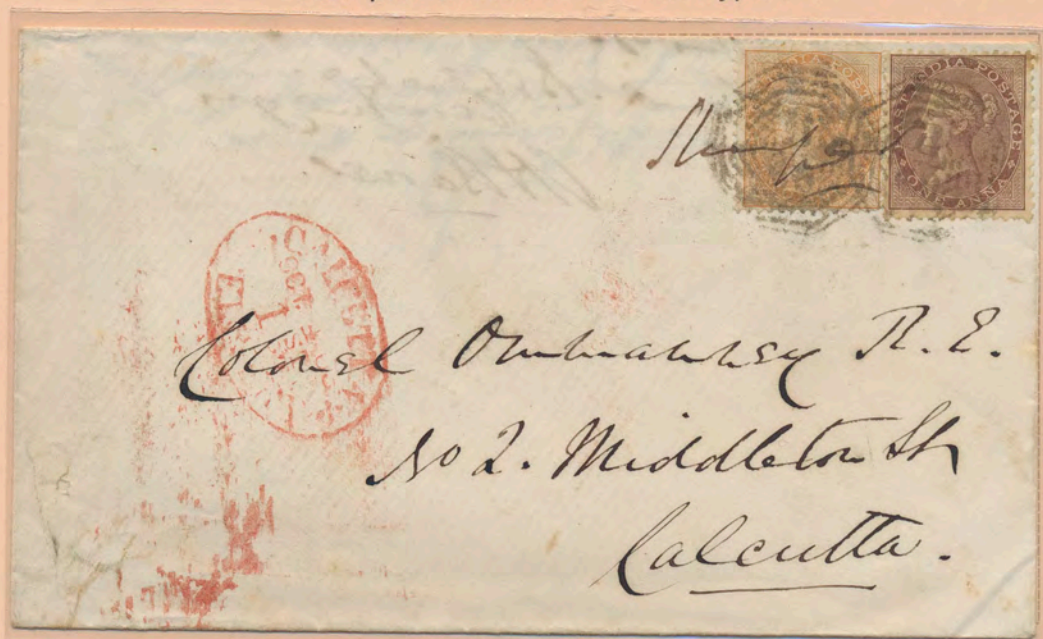 EAST INDIA POSTAGE
ONE ANNA
CALCUTTA
OCT
1
Colonel Ommanney R.E.
No 2. Middleton St
Calcutta.